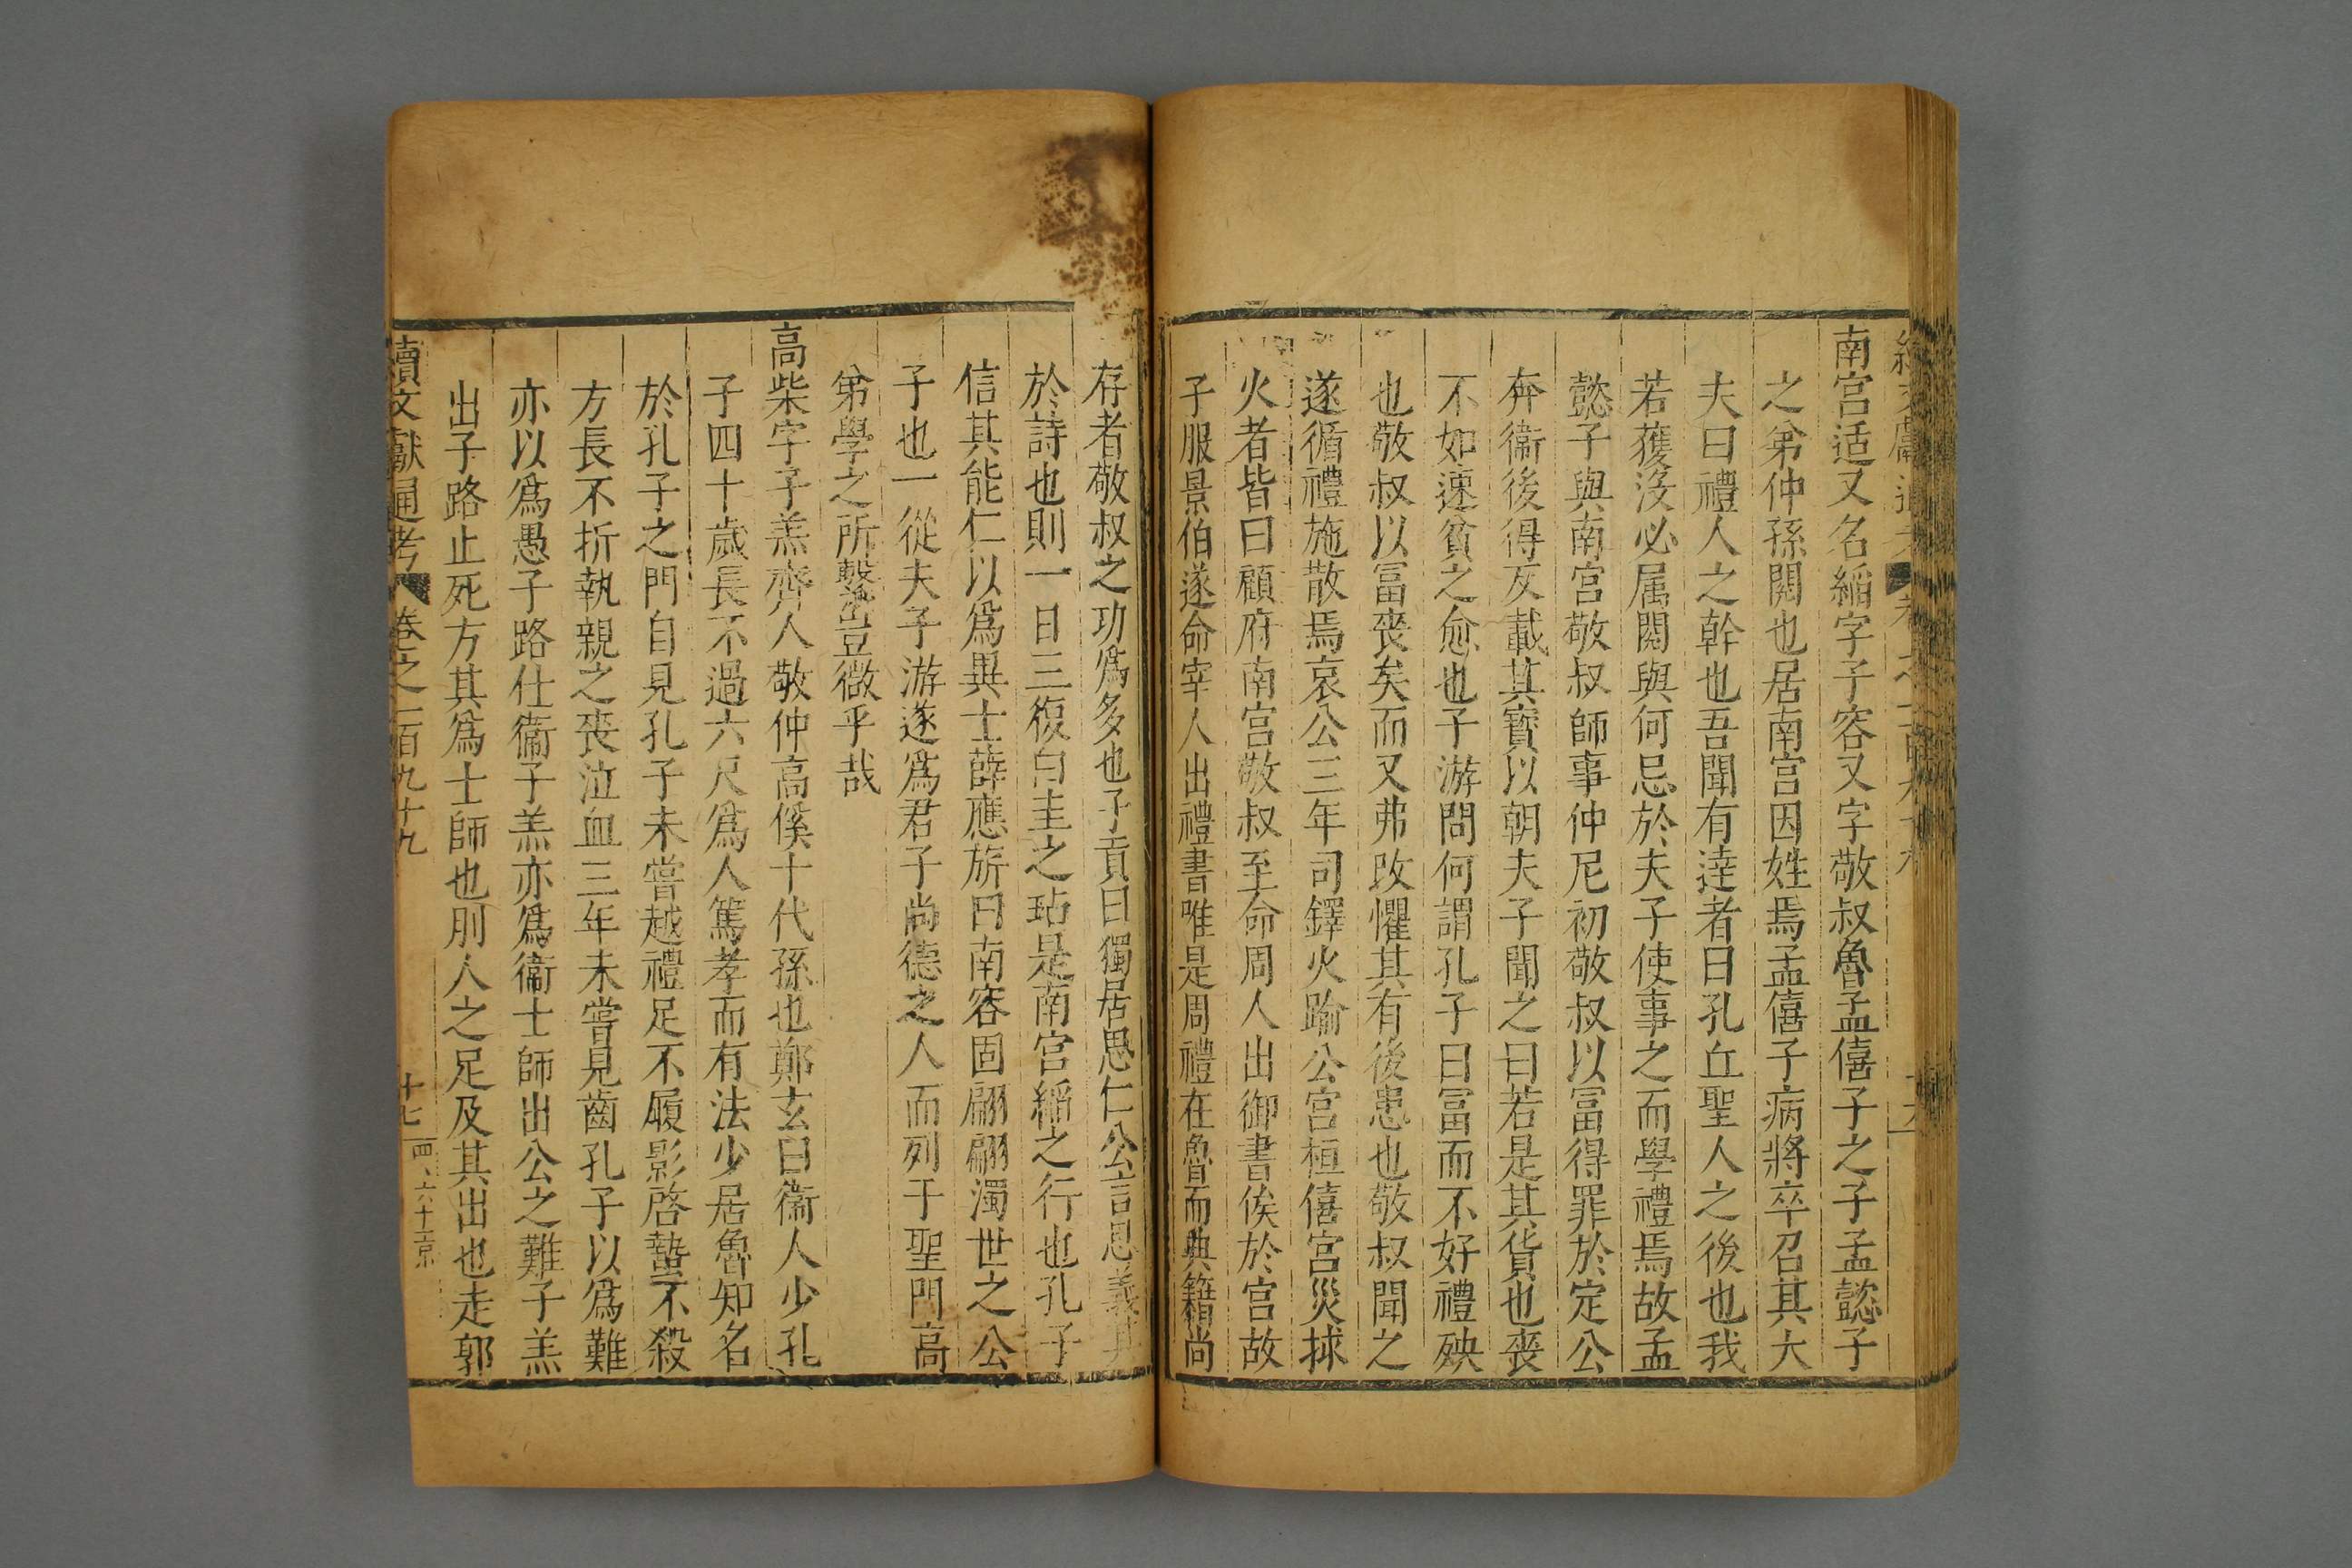 南宫适又名縚字子容又字敬叔魯孟僖子之子孟懿子
之弟仲孫閱也居南宫因姓焉孟僖子病將卒召其大
夫曰禮人之幹也吾聞有達者曰孔丘聖人之後也我
若獲没必属閱與何忌於夫子使事之而學禮焉故孟
懿子與南宫敬叔師事仲尼初敬叔以冨得罪於定公
奔衞後得反載其寳以朝夫子聞之曰若是其貨也喪
不如速貧之愈也子游問何謂孔子曰冨而不好禮殃
也敬叔以冨喪矣而又弗改懼其有後患也敬叔聞之
遂循禮施散焉哀公三年司鐸火踰公宫桓僖宫災捄
火者皆曰顧府南宫敬叔至命周人出御書俟於宫故
子服景伯遂命宰人出禮書唯是周禮在魯而典籍尚
存者敬叔之功爲多也子貢曰獨居思仁公言思義其
於詩也則一日三復白圭之玷是南宫縚之行也孔子
信其能仁以爲異士薛應旂曰南容固翩翩濁世之公
子也一從夫子游遂爲君子尚德之人而列于聖門高
弟學之所繫豈微乎哉
高柴字子羔齊人敬仲高傒十代孫也鄭玄曰衞人少孔
子四十歲長不過六尺爲人篤孝而有法少居魯知名
於孔子之門自見孔子未嘗越禮足不履影啓蟄不殺
方長不折執親之喪泣血三年未嘗見齒孔子以爲難
亦以爲愚子路仕衞子羔亦爲衞士師出公之難子羔
出子路止死方其爲士師也刖人之足及其出也走郭
續文獻通考 卷之一百九十九 十七